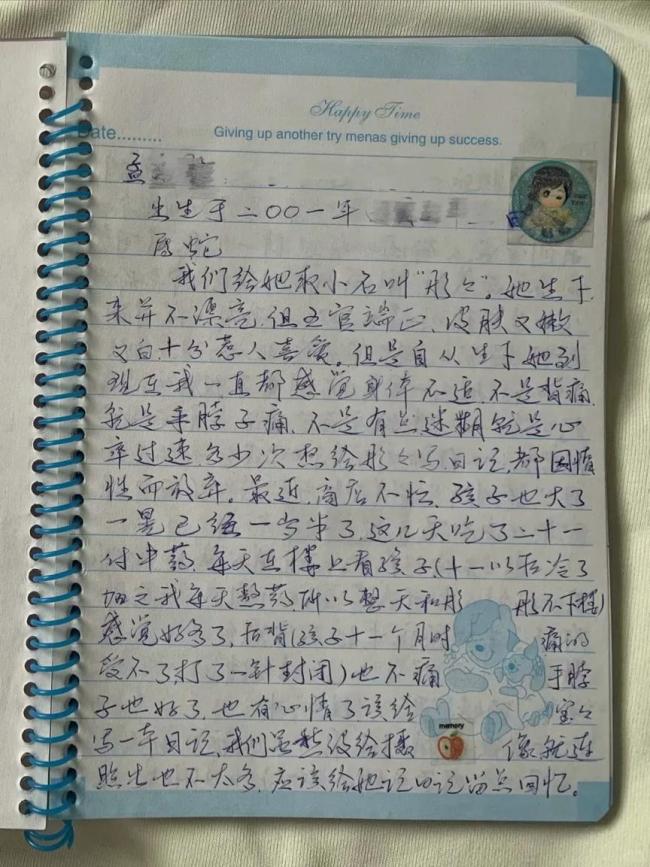 Happy Time
Date.........
Giving up another try menas giving up success.
孟
出生于二00一年
属蛇
我们给她取小名叫“彤々”。她生下
来并不漂亮,但五官端正、皮肤又嫩
又白,十分惹人喜爱。但是自从生下她到
现在我一直都感觉身体不适,不是背痛
就是手脖子痛,不是有点迷糊就是心
率过速,多少次想给彤々写日记,都因惰
性而放弃。最近,商店不忙,孩子也大了
一晃已经一岁半了,这几天吃了二十一
付中药,每天在楼上看孩子(十一以后冷了
加之我每天熬药所以整天和彤 彤不下楼)
感觉好多了,后背(孩子十一个月时 痛的
受不了打了一针封闭)也不痛 手脖
子也好了,也有心情了该给 宝々
写一本日记,我们虽然没给摄 像就连
memory
照片也不太多,应该给她记日记留点回忆。